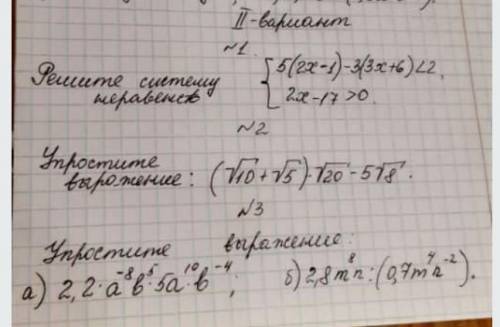 II-вариант
№1.
Решите систему
неравенств { 5(2x-1)-3(3x+6)<2,
2x-17>0.
№2
Упростите
выражение: (√10+√5)·√20-5√8.
№3
Упростите выражение:
а) 2,2·a⁻⁸b⁵·5a¹⁰·b⁻⁴; б) 2,8m⁸n:(0,7m⁴n⁻²).